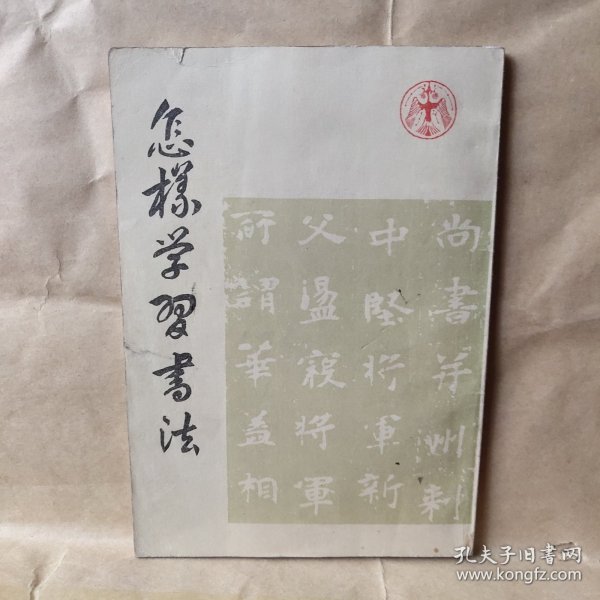 怎様学習書法
尚書并州刺
中堅將軍新
父温寇將軍
所謂華蓋相
孔夫子旧書网
www.kongfz.com